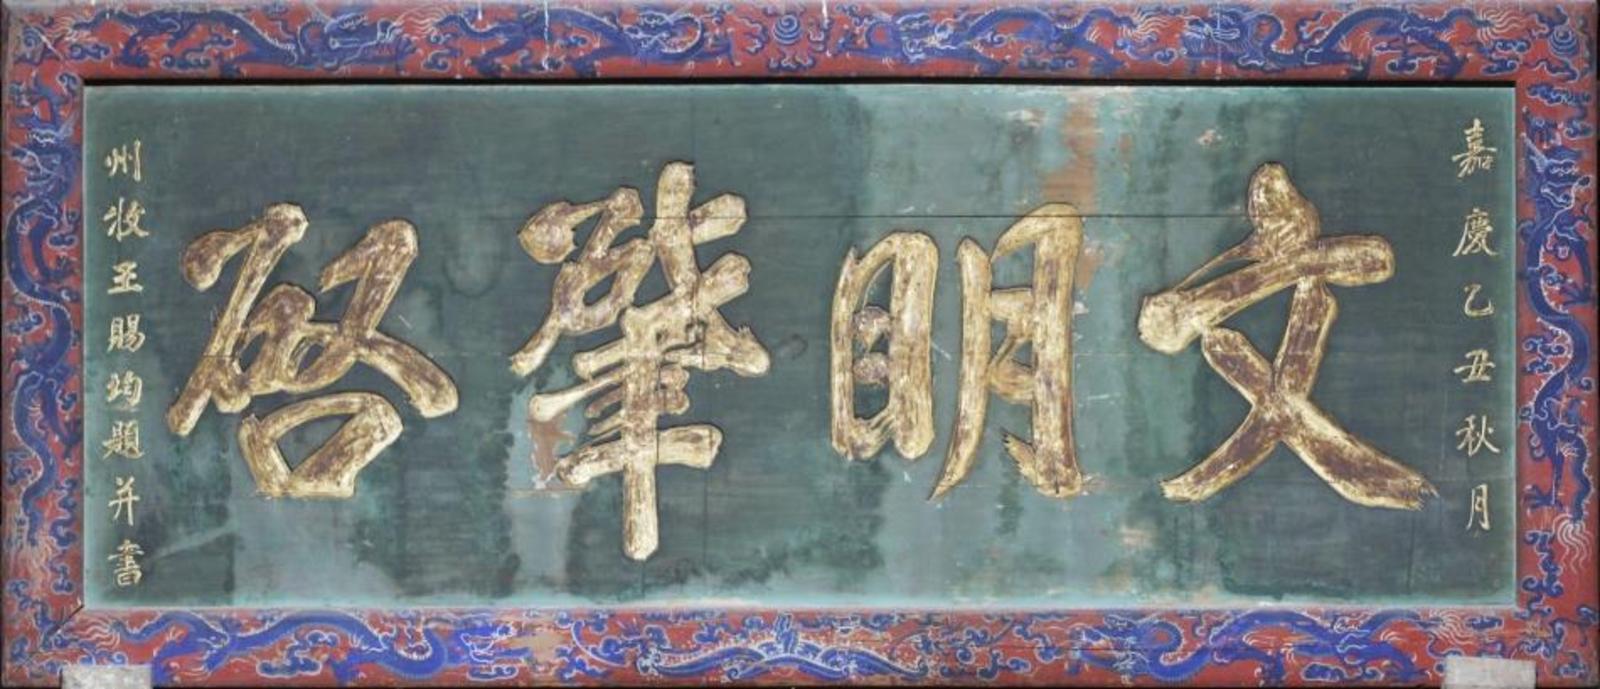 嘉慶乙丑秋月
文明肇啓
州牧王賜均題并書